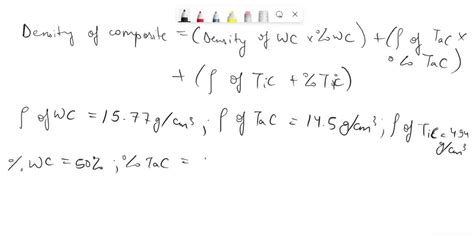 Density of composite = (Density of WC x % WC) + (ρ of TaC x % TaC)
+ (ρ of TiC + % TiC)
ρ of WC = 15.77 g/cm³ ; ρ of TaC = 14.5 g/cm³ ; ρ of TiC = 4.94 g/cm³
%. WC = 50% ; % TaC =